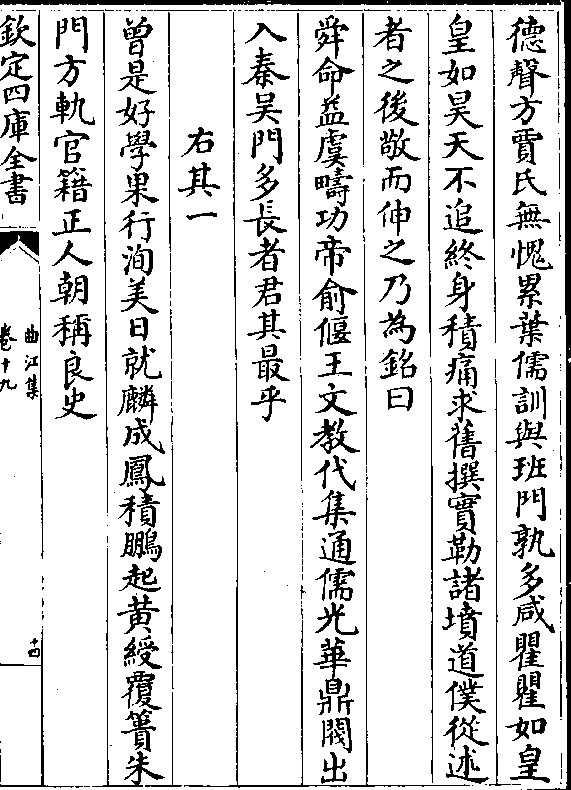 德聲方賈氏無愧累葉儒訓與班門孰多咸瞿瞿如皇
皇如昊天不追終身積痛求舊撰實勒諸墳道僕從述
者之後敬而伸之乃為銘曰
舜命益虞疇功帝俞偃王文教代集通儒光華鼎閥出
入秦吳門多長者君其最乎
右其一
曾是好學果行洵美日就麟成鳳積鵬起黄綬覆簣朱
門方軌官籍正人朝稱良史
欽定四庫全書
曲江集
卷十九
十四